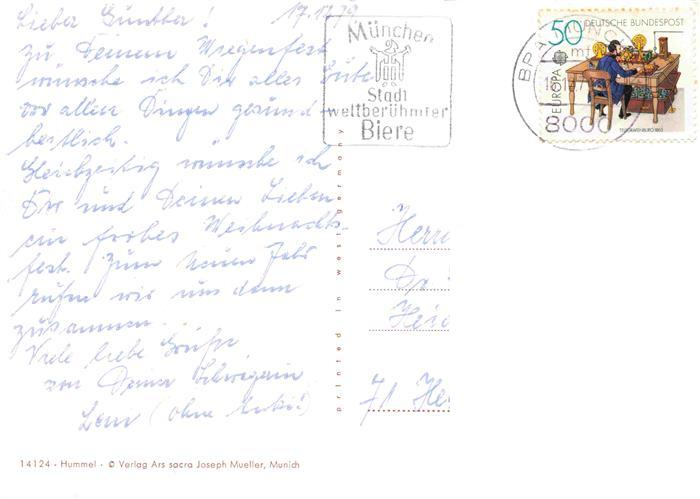 Lieber Günther! 17.12.79
zu Deinem Wiegenfest
wünsche ich Dir alles Gute
vor allen Dingen gesund-
heitlich.
Gleichzeitig wünsche ich
Dir und Deinen Lieben
ein frohes Weihnachts-
fest. Zum neuen Jahr
rufen wir uns dann
zusammen...
Viele liebe Grüße
von Deiner Schwägerin
(ohne
München
Stadt
weltberühmter
Biere
50 DEUTSCHE BUNDESPOST
EUROPA
8000
printed in west germany
Herrn
71
14124 - Hummel - © Verlag Ars sacra Joseph Mueller, Munich